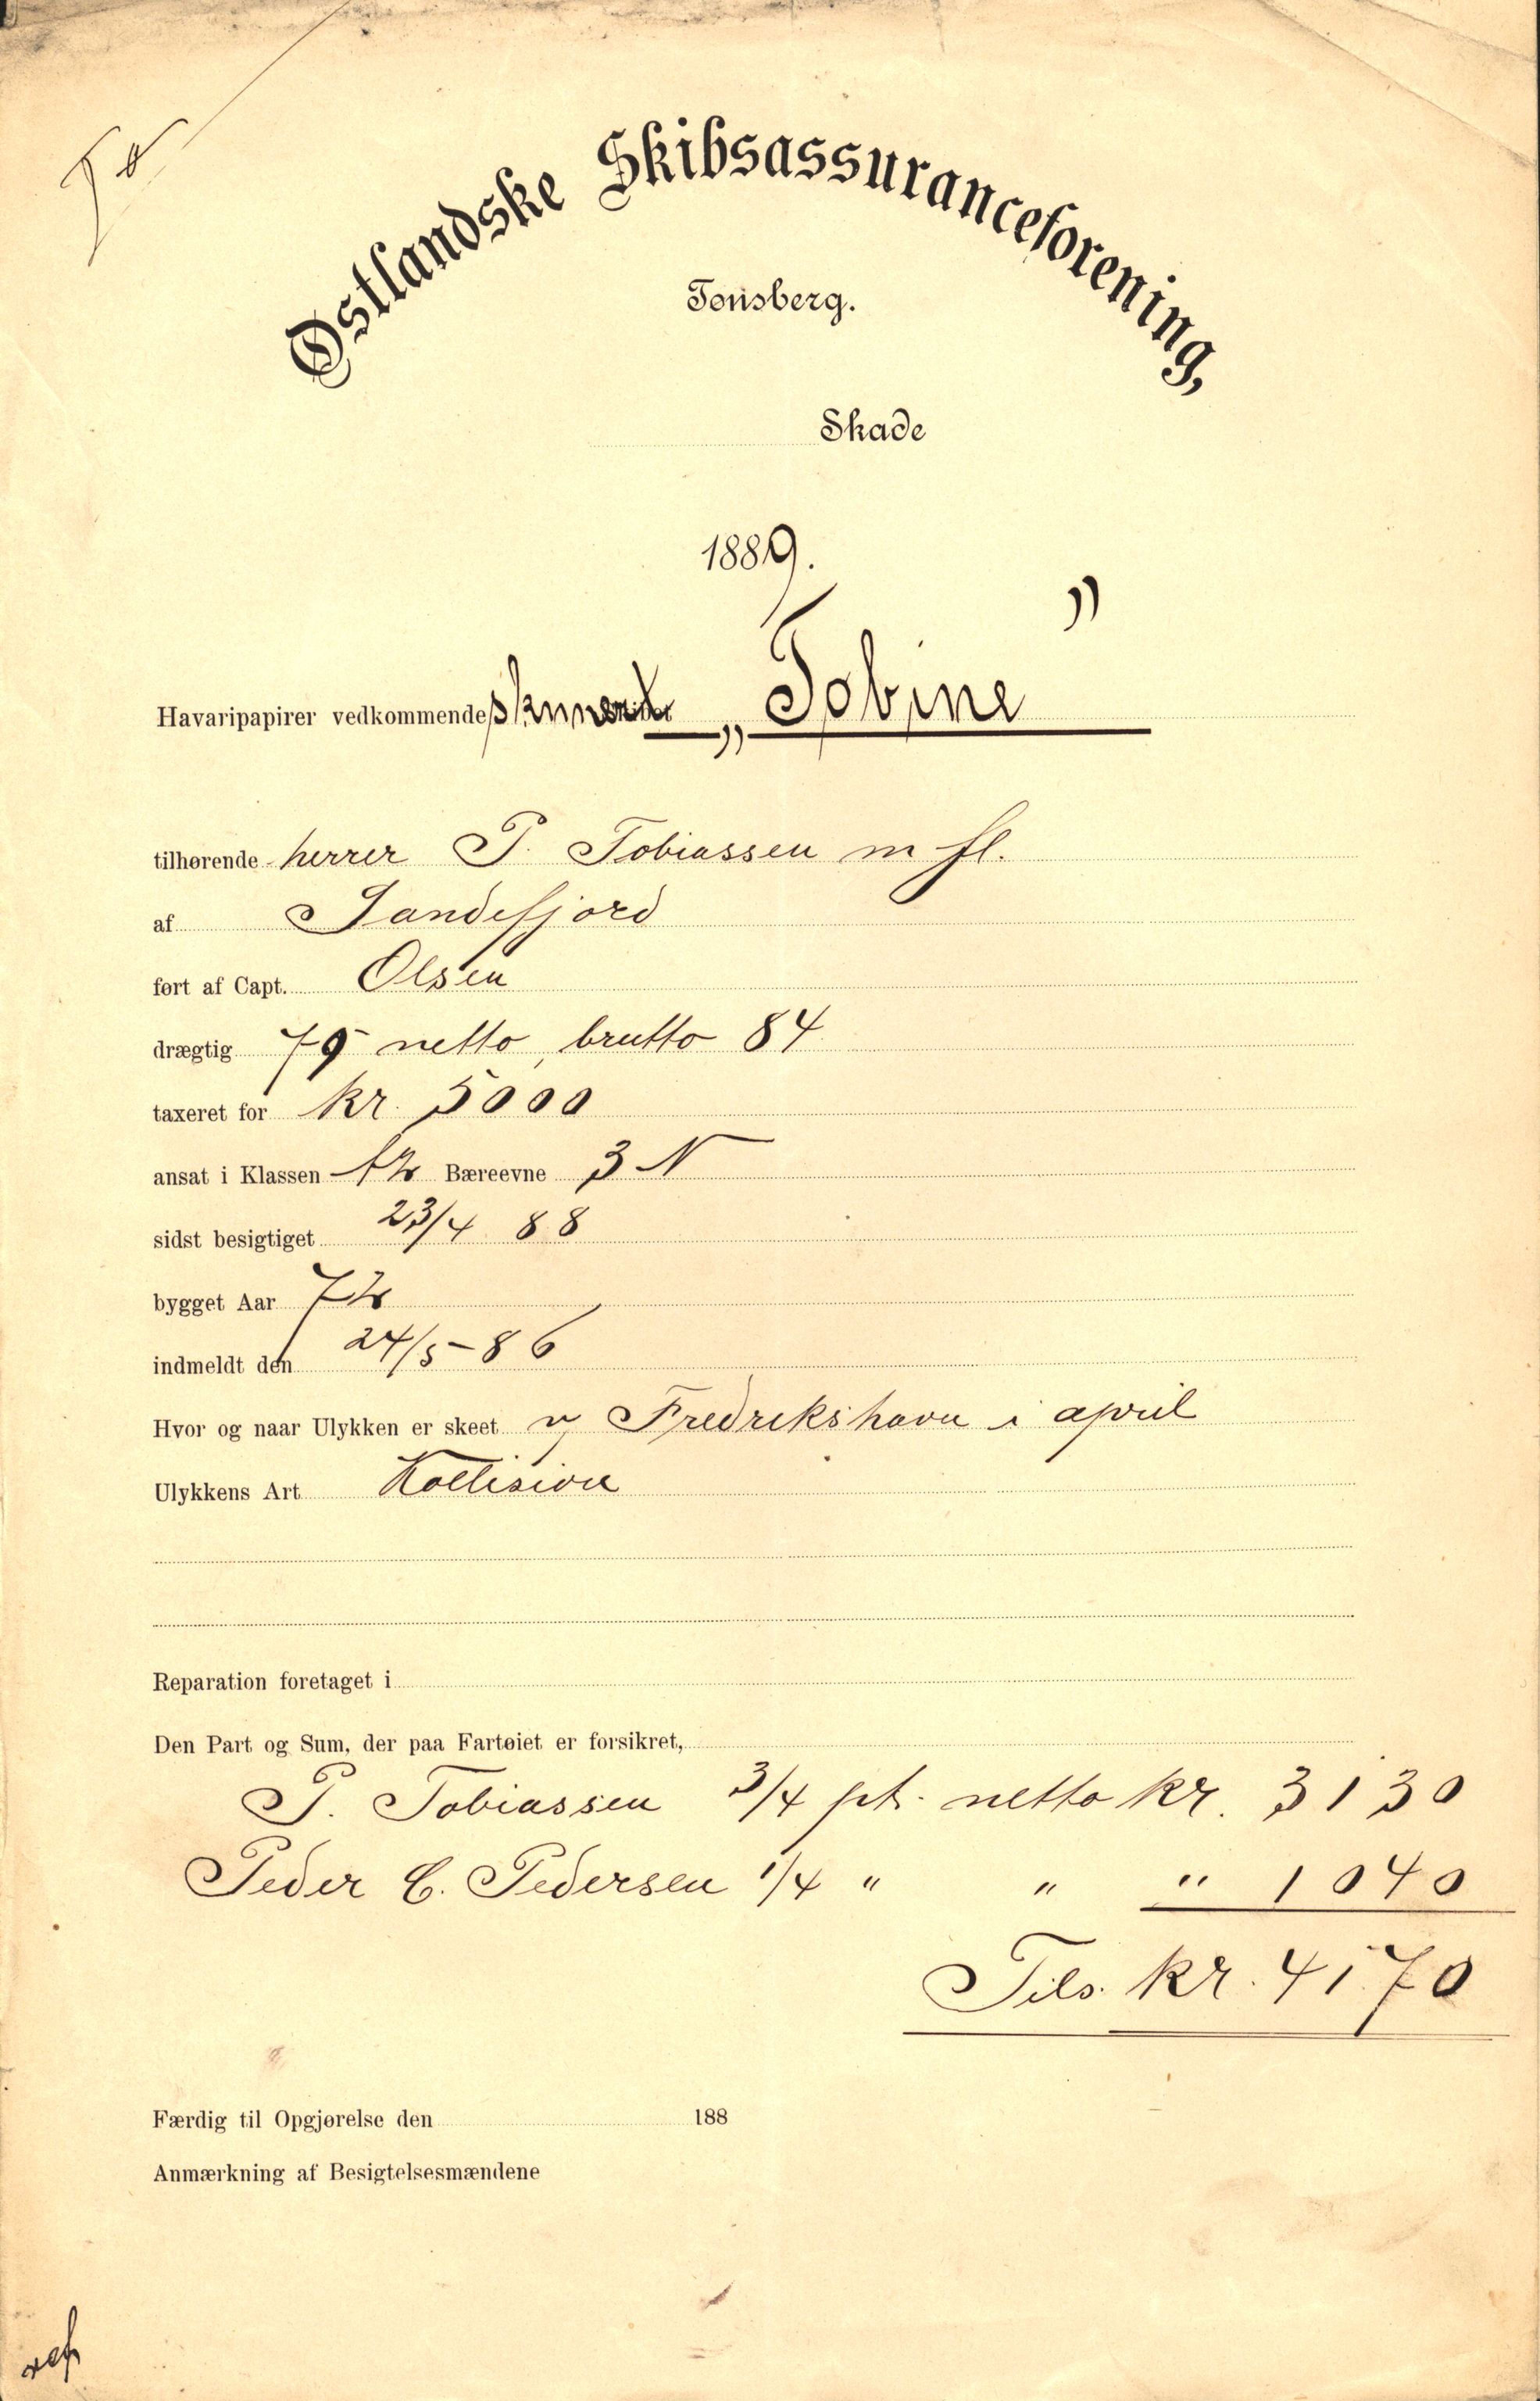 Østlandske Skibsassuranceforening,
Tønsberg.
Skade
1889.
Havaripapirer vedkommende skonnert „Tobine”
tilhørende herrer P. Tobiassen m fl.
af Sandefjord
ført af Capt. Olsen
drægtig 79 netto, brutto 84
taxeret for kr. 5000
ansat i Klassen Bæreevne 3 N
sidst besigtiget 23/4 88
bygget Aar
indmeldt den 24/5-86
Hvor og naar Ulykken er skeet v Fredrikshavn i april
Ulykkens Art Kollision
Reparation foretaget i
Den Part og Sum, der paa Fartøiet er forsikret,
P. Tobiassen 3/4 pt. netto kr. 3130
Peder C. Pedersen 1/4 " " " 1040
Tils. kr. 4170
Færdig til Opgjørelse den 188
Anmærkning af Besigtelsesmændene